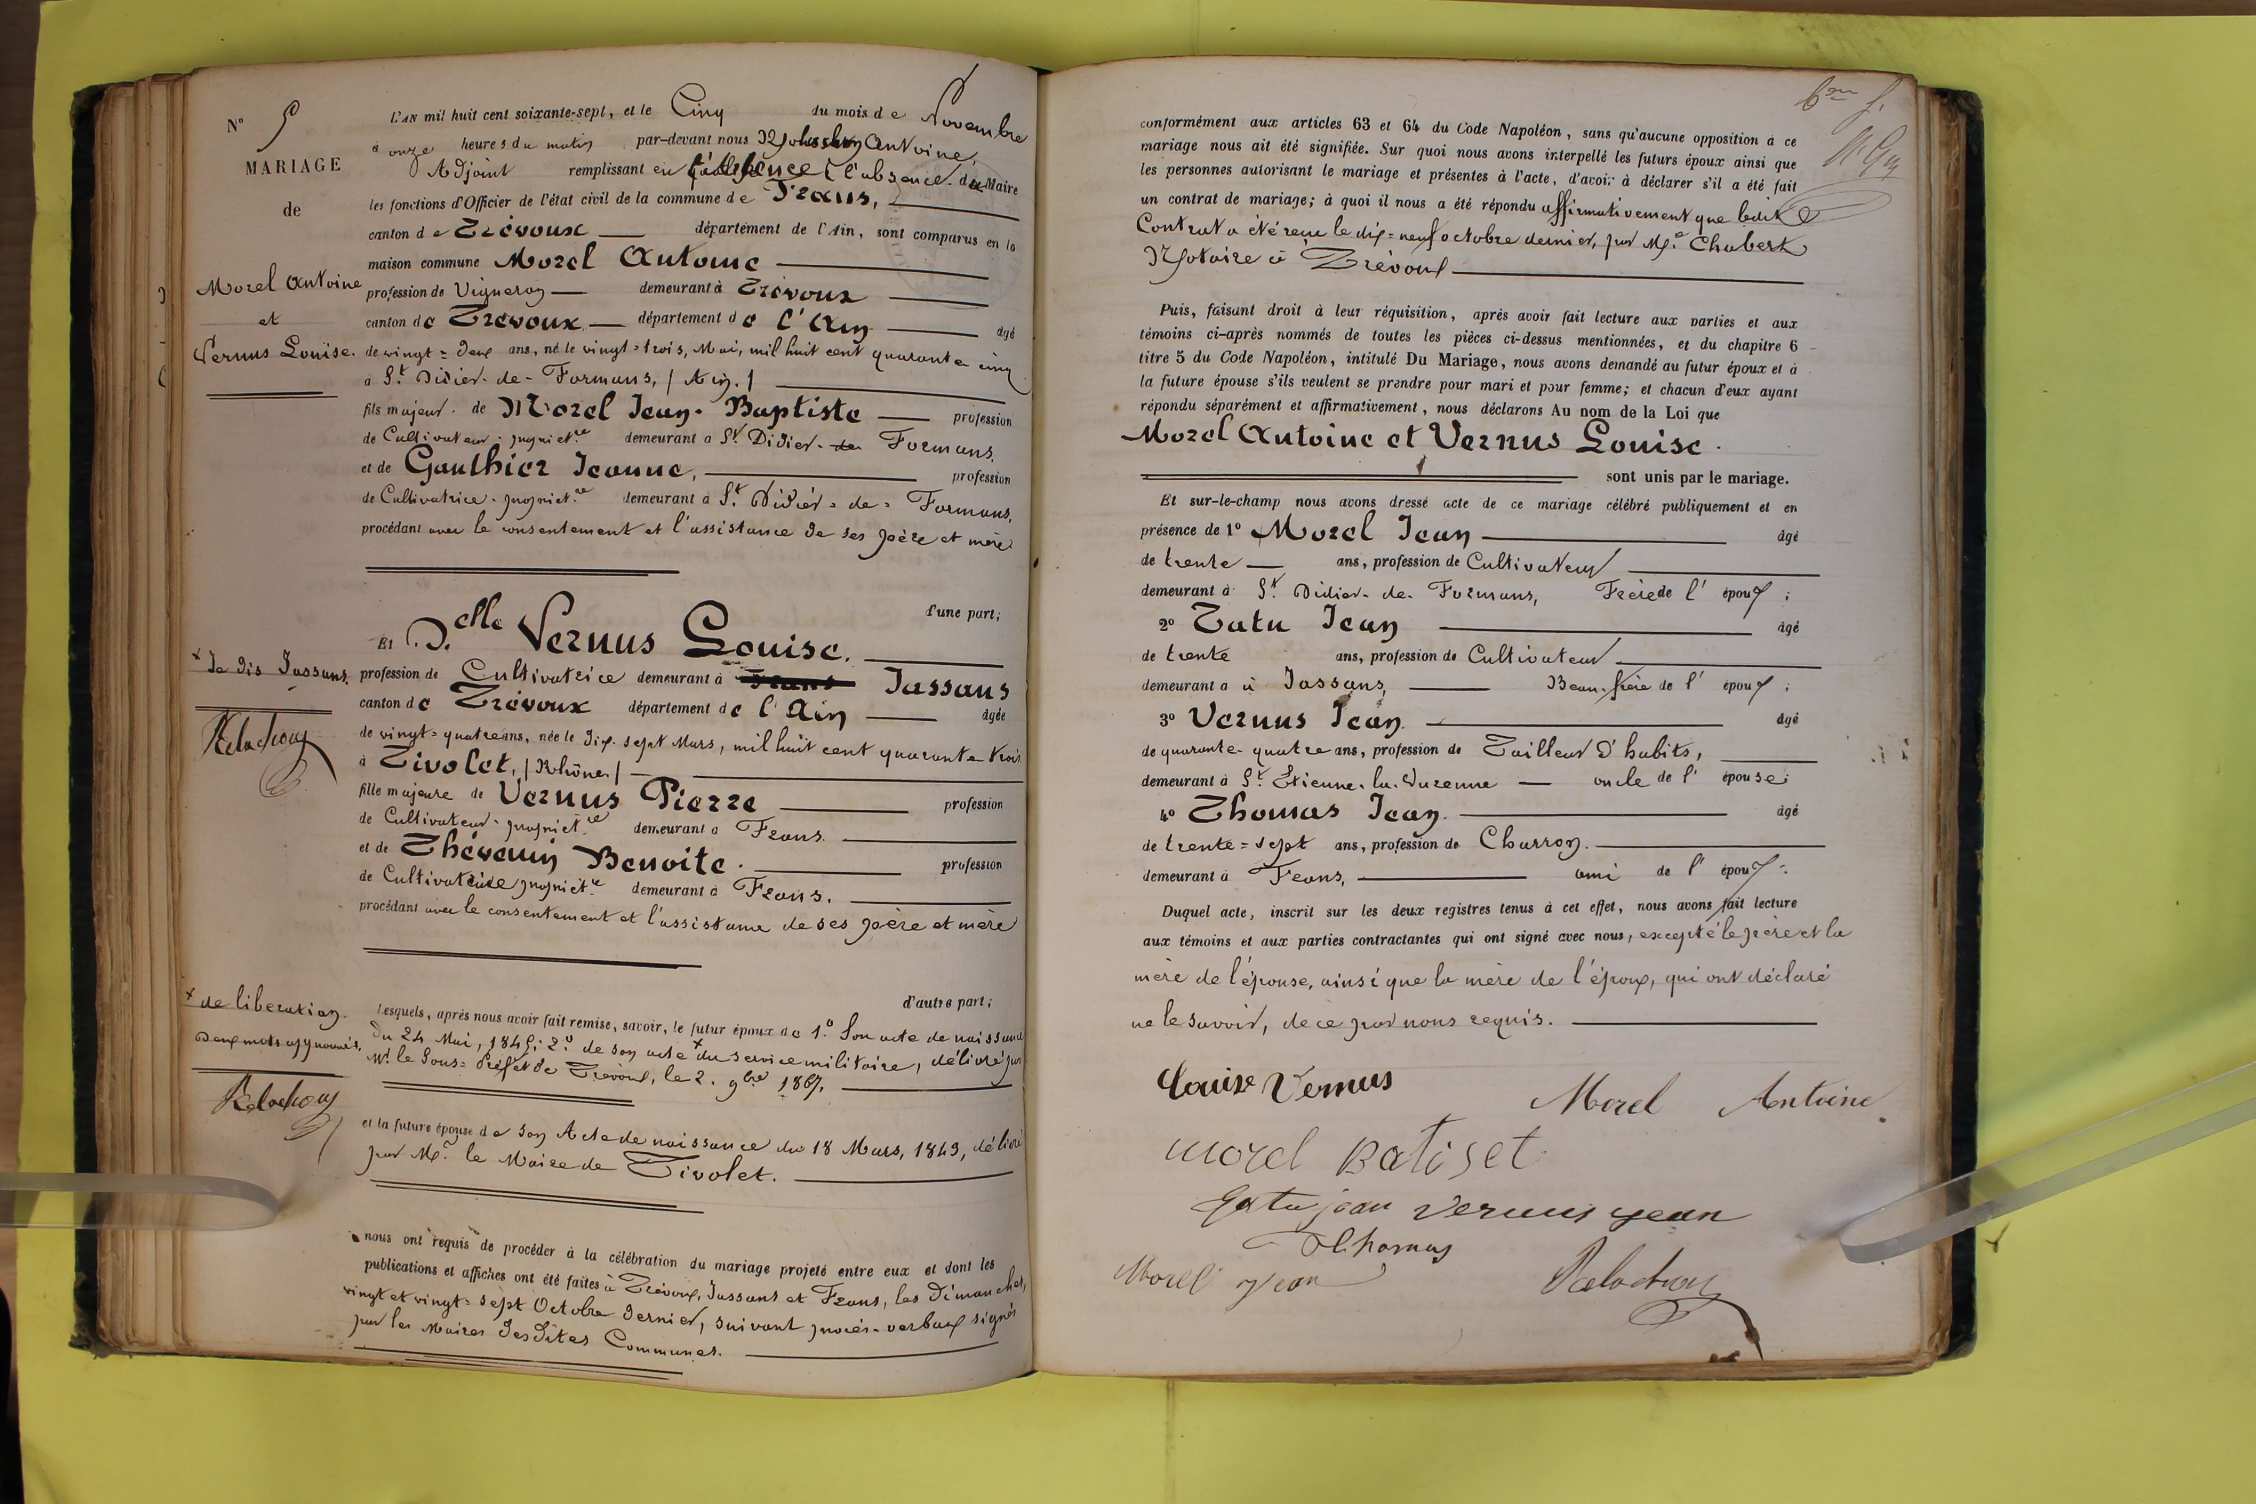 N° 5
MARIAGE
de
Morel Antoine
et
Vernus Louise.
L'AN mil huit cent soixante-sept, et le Cinq du mois de Novembre
à onze heures du matin par-devant nous Antoine,
Adjoint remplissant en l'absence du Maire
les fonctions d'Officier de l'état civil de la commune de Frans,
canton de Trévoux département de l'Ain, sont comparus en la
maison commune Morel Antoine
profession de Vigneron demeurant à Trévoux
canton de Trévoux département de l'Ain âgé
de vingt=deux ans, né le vingt=trois, Mai, mil huit cent quarante cinq
à St Didier-de-Formans, (Ain.)
fils majeur de Morel Jean-Baptiste profession
de Cultivateur-propriét.re demeurant à St Didier-de Formans.
et de Gauthier Jeanne, profession
de Cultivatrice-propriét.re demeurant à St Didier=de=Formans,
procédant avec le consentement et l'assistance de ses père et mère
d'une part;
Et D.elle Vernus Louise.
+ Je dis Jassans.
profession de Cultivatrice demeurant à Frans Jassans
canton de Trévoux département de l'Ain âgée
de vingt=quatre ans, née le dix-sept Mars, mil huit cent quarante trois
à Civolet, (Rhône)
fille majeure de Vernus Pierre profession
de Cultivateur-propriét.re demeurant à Frans.
et de Thévenin Benoite. profession
de Cultivatrice propriét.re demeurant à Frans.
procédant avec le consentement et l'assistance de ses père et mère
d'autre part;
+ de liberation.
Deux mots approuvés.
Lesquels, après nous avoir fait remise, savoir, le futur époux de 1.° Son acte de naissance
du 24 Mai, 1845; 2.° de son acte + du service militaire, délivré par
Mr. le Sous=Préfet de Trévoux, le 2. 9bre 1867.
et la future épouse de son Acte de naissance du 18 Mars, 1843, délivré
par Mr. le Maire de Civolet.
nous ont requis de procéder à la célébration du mariage projeté entre eux et dont les
publications et affiches ont été faites à Trévoux, Jassans et Frans, les Dimanches,
vingt et vingt=sept Octobre dernier, suivant procès-verbaux signés
par les Maires desdites Communes.
6me f.
conformément aux articles 63 et 64 du Code Napoléon, sans qu'aucune opposition à ce
mariage nous ait été signifiée. Sur quoi nous avons interpellé les futurs époux ainsi que
les personnes autorisant le mariage et présentes à l'acte, d'avoir à déclarer s'il a été fait
un contrat de mariage; à quoi il nous a été répondu affirmativement que ledit
Contrat a été reçu le dix=neuf octobre dernier, par Me. Chabert
Notaire à Trévoux
Puis, faisant droit à leur réquisition, après avoir fait lecture aux parties et aux
témoins ci-après nommés de toutes les pièces ci-dessus mentionnées, et du chapitre 6
titre 5 du Code Napoléon, intitulé Du Mariage, nous avons demandé au futur époux et à
la future épouse s'ils veulent se prendre pour mari et pour femme; et chacun d'eux ayant
répondu séparément et affirmativement, nous déclarons Au nom de la Loi que
Morel Antoine et Vernus Louise.
sont unis par le mariage.
Et sur-le-champ nous avons dressé acte de ce mariage célébré publiquement et en
présence de 1° Morel Jean âgé
de trente ans, profession de Cultivateur
demeurant à St Didier-de-Formans, Frère de l'époux;
2° Tatu Jean âgé
de trente ans, profession de Cultivateur
demeurant a à Jassans, Beau-frère de l'époux;
3° Vernus Jean. âgé
de quarante-quatre ans, profession de Tailleur d'habits,
demeurant à St Etienne-la-Varenne oncle de l'épouse;
4° Thomas Jean. âgé
de trente=sept ans, profession de Charron.
demeurant à Frans, ami de l'époux.
Duquel acte, inscrit sur les deux registres tenus à cet effet, nous avons fait lecture
aux témoins et aux parties contractantes qui ont signé avec nous, excepté le père et la
mère de l'épouse, ainsi que la mère de l'époux, qui ont déclaré
ne le savoir, de ce par nous requis.
Louise Vernus
Morel Antoine
morel Batiset
Tatu jean vernus jean
Thomas
Morel jean